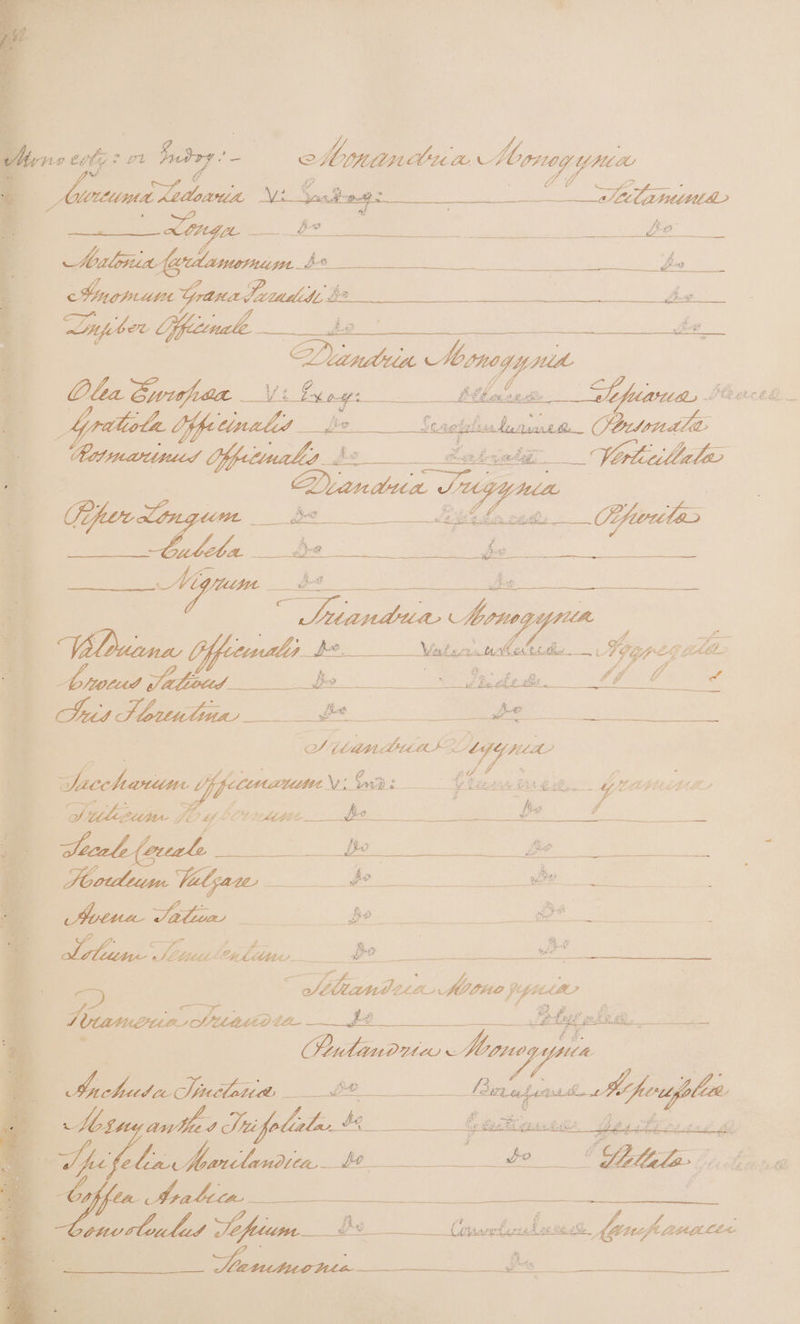 Monocoty: or Endog:- Monandria Monogynia
Curcuma Zedoaria V: Endog: Scitaminia
Longa Do Do
Matonia Cardamomum Do Do
Amomum Grana Paradisi Do Do
Zinjiber Officinale Do Do
Diandria Monogynia
Olea Europaea V: Exog: Oleacea Sepiaria Oleacea
Gratiola Officinalis Do Scrophularinea Personata
Rosmarinus Officinalis Do Labiata Verticillata
Diandria Trigynia
Piper Longum Do Piperacea Piperita
Cubeba Do Do
Nigrum Do Do
Triandria Monogynia
Valeriana Officinalis Do Aggregata
Crocus Sativus Do Iridea
Iris Florentina Do Do
Triandria Digynia
Saccharum Officinarum V: End: Graminea Gramina
Triticum Hybernum Do Do
Secale Cereale Do Do
Hordeum Vulgare Do Do
Avena Sativa Do Do
Lolium Temulentum Do Do
Tetrandria Monogynia
Krameria Triandia Do
Pentandria Monogynia
Anchusa Tinctoria Do Boraginea Asperifolia
Menyanthes Trifoliata Do
Spigelia Marilandica Do Do Stellata
Coffea Arabica
Convolvulus Sepium Do Convolvulacea Campanacei
Scammonia Do